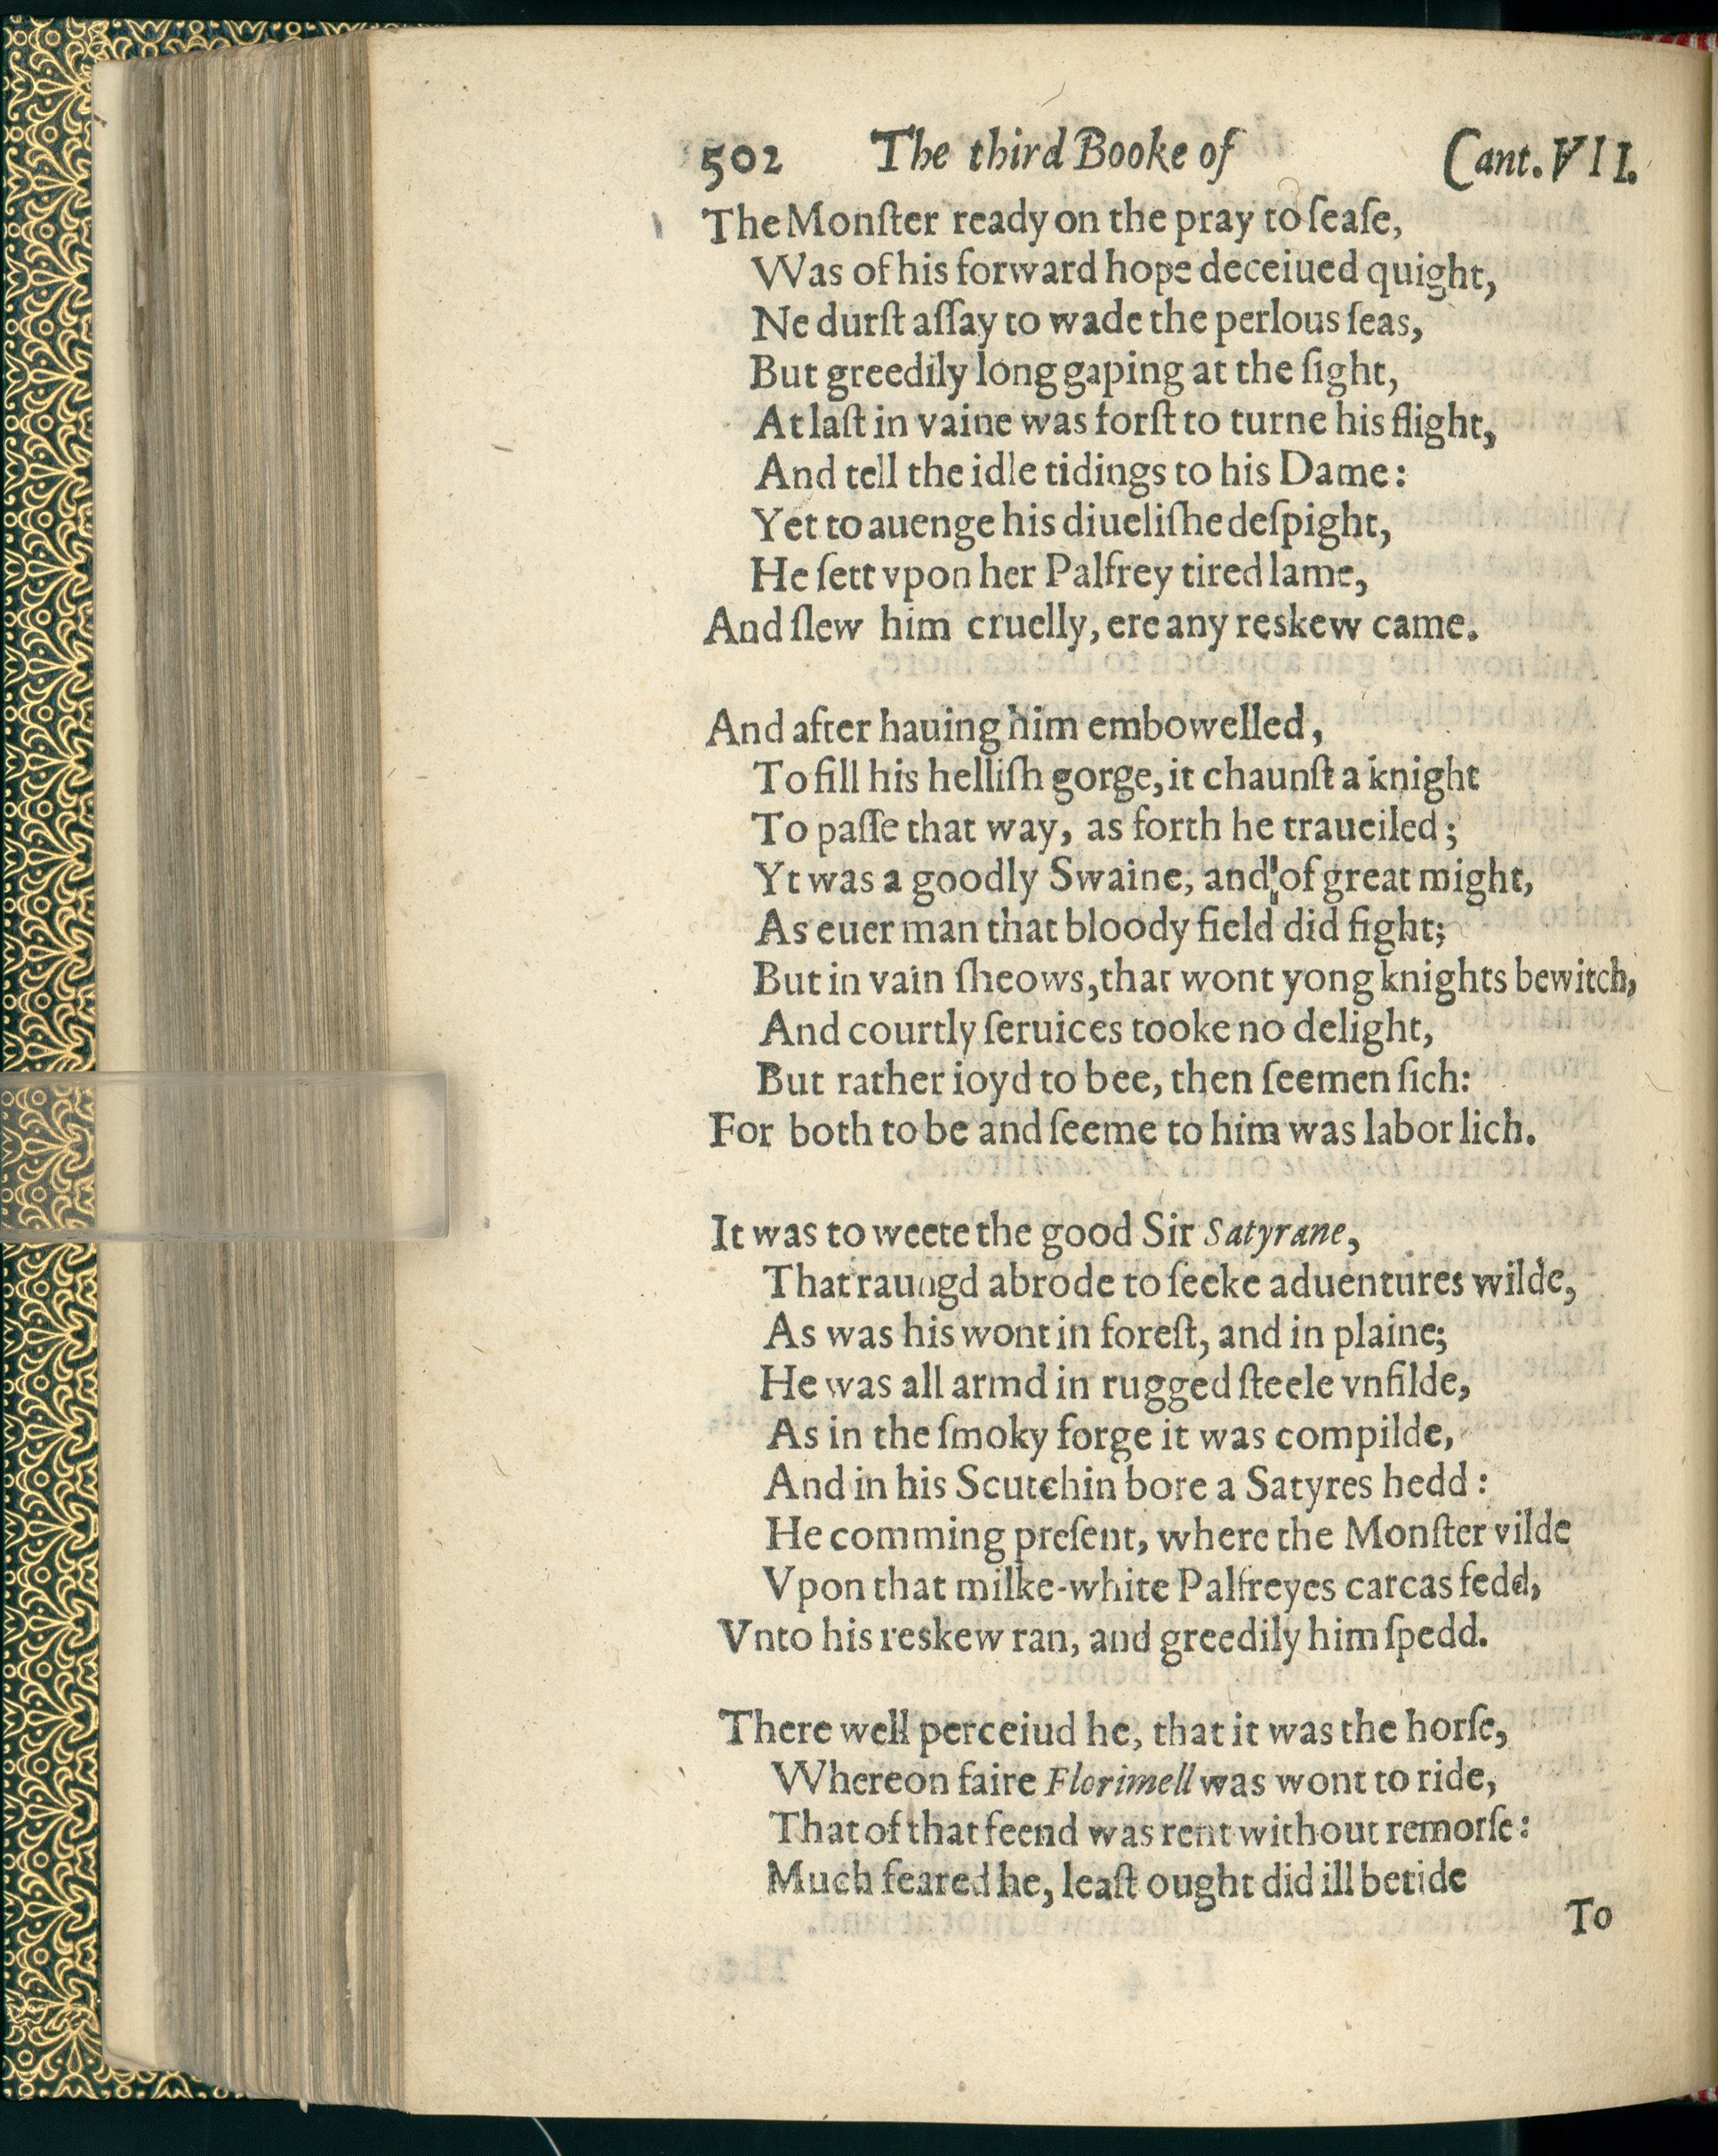 502 The third Booke of Cant. VII.
The Monſter ready on the pray to ſeaſe,
Was of his forward hope deceiued quight,
Ne durſt aſſay to wade the perlous ſeas,
But greedily long gaping at the ſight,
At laſt in vaine was forſt to turne his flight,
And tell the idle tidings to his Dame:
Yet to auenge his diueliſhe deſpight,
He ſett vpon her Palfrey tired lame,
And ſlew him cruelly, ere any reskew came.
And after hauing him embowelled,
To fill his helliſh gorge, it chaunſt a knight
To paſſe that way, as forth he traueiled;
Yt was a goodly Swaine, and of great might,
As euer man that bloody field did fight;
But in vain ſheows, that wont yong knights bewitch,
And courtly ſeruices tooke no delight,
But rather ioyd to bee, then ſeemen ſich:
For both to be and ſeeme to him was labor lich.
It was to weete the good Sir Satyrane,
That raungd abrode to ſeeke aduentures wilde,
As was his wont in foreſt, and in plaine;
He was all armd in rugged ſteele vnfilde,
As in the ſmoky forge it was compilde,
And in his Scutchin bore a Satyres hedd:
He comming preſent, where the Monſter vilde
Vpon that milke-white Palfreyes carcas fedd,
Vnto his reskew ran, and greedily him ſpedd.
There well perceiud he, that it was the horſe,
Whereon faire Florimell was wont to ride,
That of that feend was rent without remorſe:
Much feared he, leaſt ought did ill betide
To